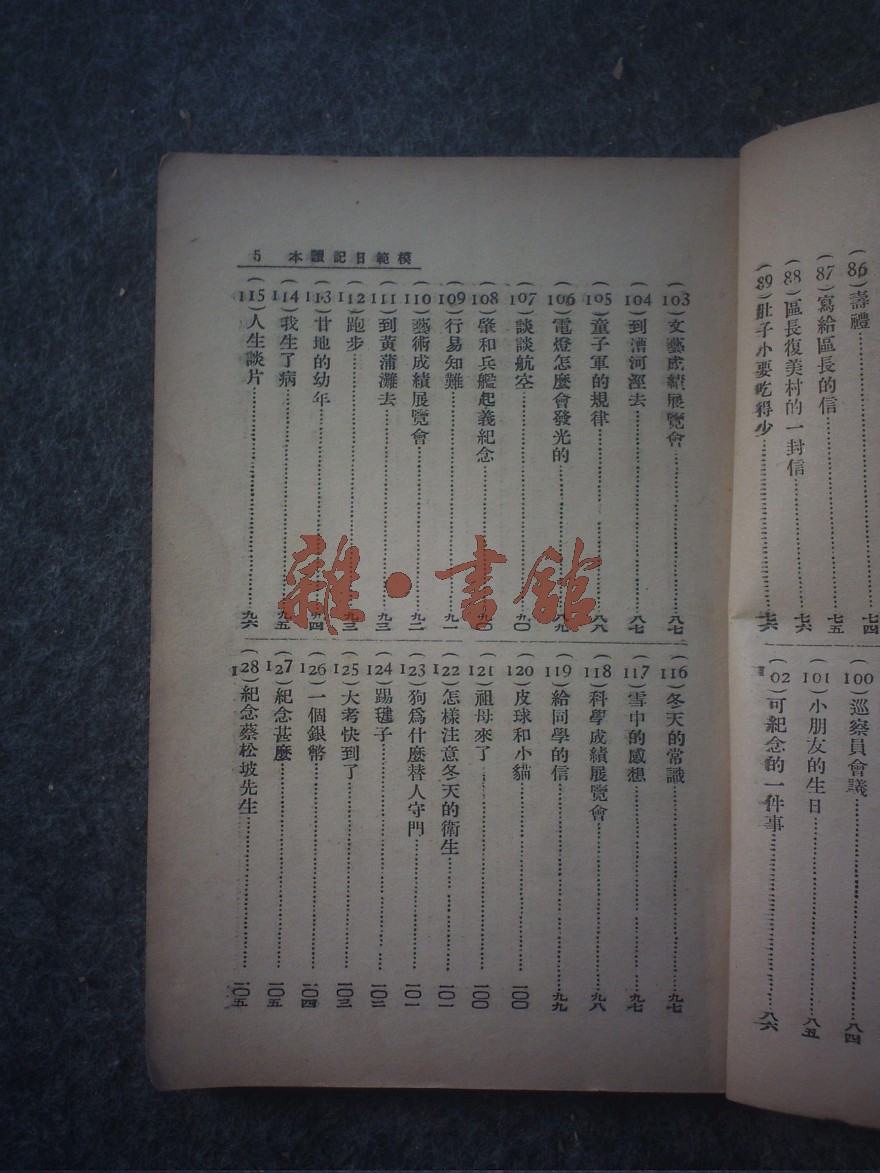 (86)壽禮……七四
(87)寫給區長的信……七五
(88)區長復美村的一封信……七六
(89)肚子小要吃得少……七六
(100)巡察員會議……八四
(101)小朋友的生日……八五
(102)可紀念的一件事……八六
模範日記讀本 5
(103)文藝成績展覽會……八七
(104)到漕河涇去……八七
(105)童子軍的規律……八八
(106)電燈怎麼會發光的……八九
(107)談談航空……九〇
(108)肇和兵艦起義紀念……九〇
(109)行易知難……九一
(110)藝術成績展覽會……九二
(111)到黃蒲灘去……九三
(112)跑步……九三
(113)甘地的幼年……九四
(114)我生了病……九五
(115)人生談片……九六
(116)冬天的常識……九七
(117)雪中的感想……九七
(118)科學成績展覽會……九八
(119)給同學的信……九九
(120)皮球和小貓……一〇〇
(121)祖母來了……一〇〇
(122)怎樣注意冬天的衛生……一〇一
(123)狗爲什麼替人守門……一〇一
(124)踢毽子……一〇二
(125)大考快到了……一〇三
(126)一個銀幣……一〇四
(127)紀念甚麼……一〇五
(128)紀念蔡松坡先生……一〇五
雜·書館